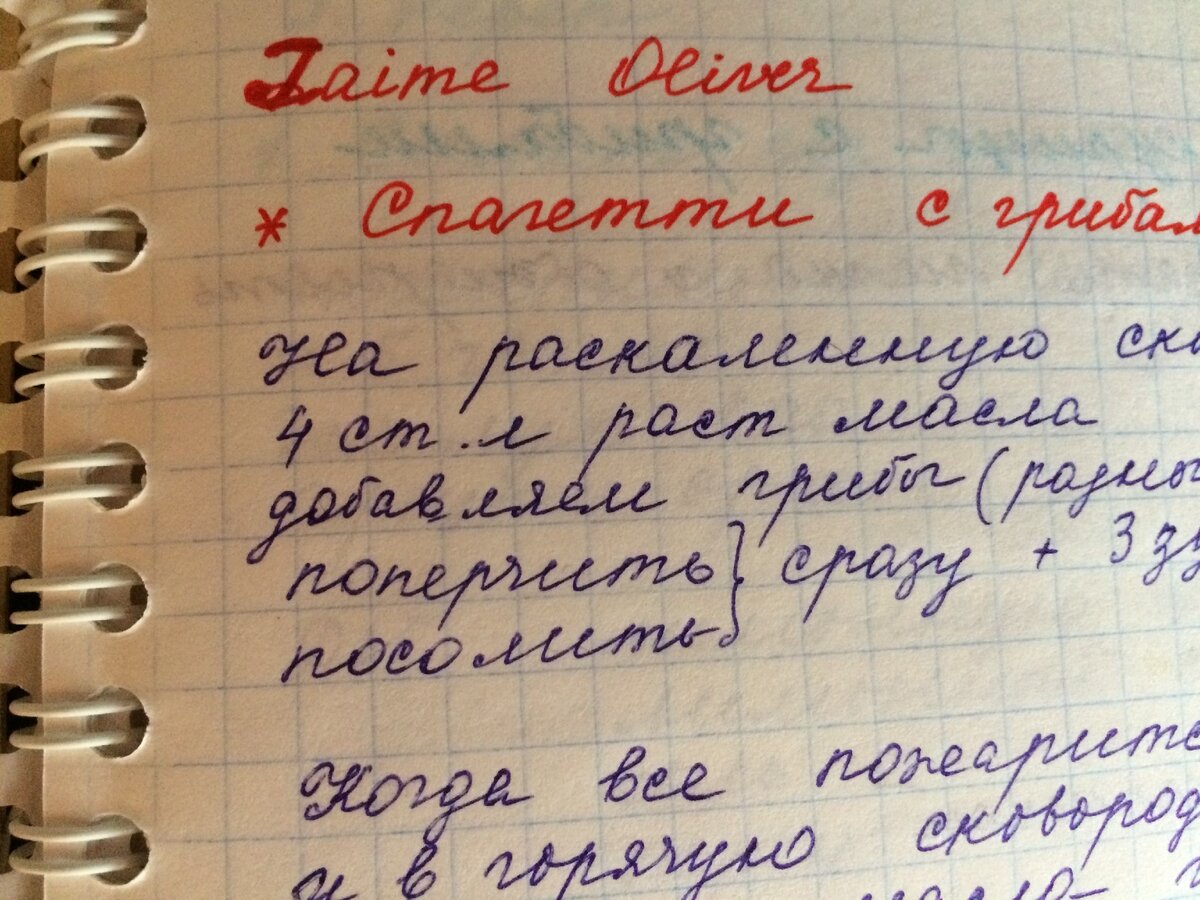 Jaime Oliver
* Спагетти с грибам
На раскаленную ско
4 ст.л раст масла
добавляем грибы (разны
поперчить } сразу + 3 зу
посолить
Когда все пожарите
и в горячую сковород
масло